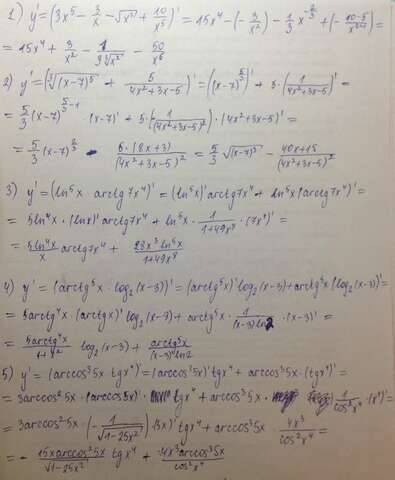 1) y' = (3x⁵ - 3/x - √x³ + 10/x⁵)' = 15x⁴ - (-3/x²) - 1/3 x^(-2/3) + (-10·5/x⁵⁺¹) =
= 15x⁴ + 3/x² - 1/(3∛x²) - 50/x⁶
2) y' = (∛(x-7)⁵ + 5/(4x²+3x-5))' = ((x-7)^(5/3))' + 5·(1/(4x²+3x-5))' =
= 5/3 (x-7)^(5/3-1) · (x-7)' + 5·(-1/(4x²+3x-5)²)·(4x²+3x-5)' =
= 5/3 (x-7)^(2/3) - 5·(8x+3)/(4x²+3x-5)² = 5/3 √(x-7)² - (40x+15)/(4x²+3x-5)²
3) y' = (ln⁵x arctg7x⁴)' = (ln⁵x)' arctg7x⁴ + ln⁵x (arctg7x⁴)' =
= 5ln⁴x · (lnx)' arctg7x⁴ + ln⁵x · 1/(1+49x⁸) · (7x⁴)' =
= 5ln⁴x/x arctg7x⁴ + 28x³ln⁵x/(1+49x⁸)
4) y' = (arctg⁵x · log₂(x-3))' = (arctg⁵x)' log₂(x-3) + arctg⁵x (log₂(x-3))' =
= 5arctg⁴x · (arctgx)' log₂(x-3) + arctg⁵x · 1/((x-3)ln2) · (x-3)' =
= 5arctg⁴x/(1+x²) log₂(x-3) + arctg⁵x/((x-3)ln2)
5) y' = (arccos³5x tgx⁴)' = (arccos³5x)' tgx⁴ + arccos³5x · (tgx⁴)' =
= 3arccos²5x · (arccos5x)' tgx⁴ + arccos³5x · 1/cos²x⁴ · (x⁴)' =
= 3arccos²5x · (-1/√(1-25x²)) · (5x)' tgx⁴ + arccos³5x · 4x³/cos²x⁴ =
= - 15arccos²5x/√(1-25x²) tgx⁴ + 4x³arccos³5x/cos²x⁴